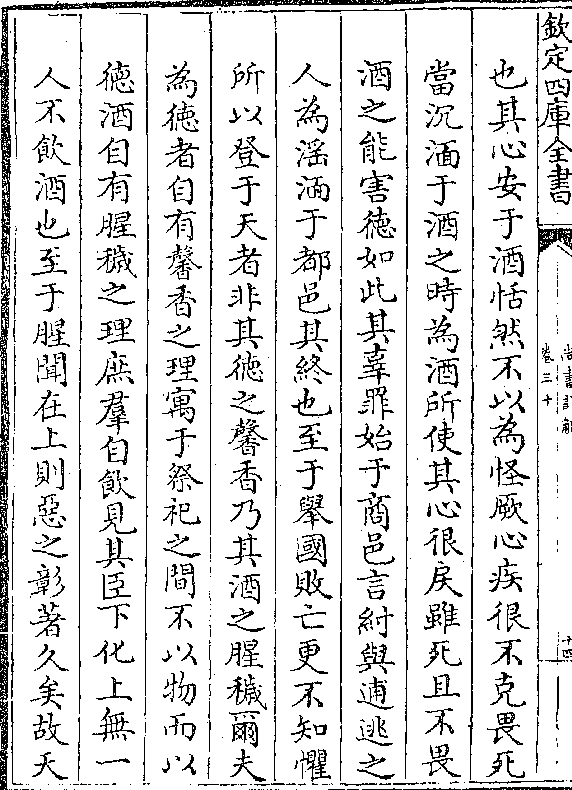 欽定四庫全書
尚書詳解
卷三十
十四
也其心安于酒恬然不以為怪厥心疾很不克畏死
當沉湎于酒之時為酒所使其心很戾雖死且不畏
酒之能害徳如此其辜罪始于商邑言紂與逋逃之
人為滛湎于都邑其終也至于舉國敗亡更不知懼
所以登于天者非其徳之馨香乃其酒之腥穢爾夫
為徳者自有馨香之理寓于祭祀之間不以物而以
徳酒自有腥穢之理庶羣自飲見其臣下化上無一
人不飲酒也至于腥聞在上則惡之彰著久矣故天